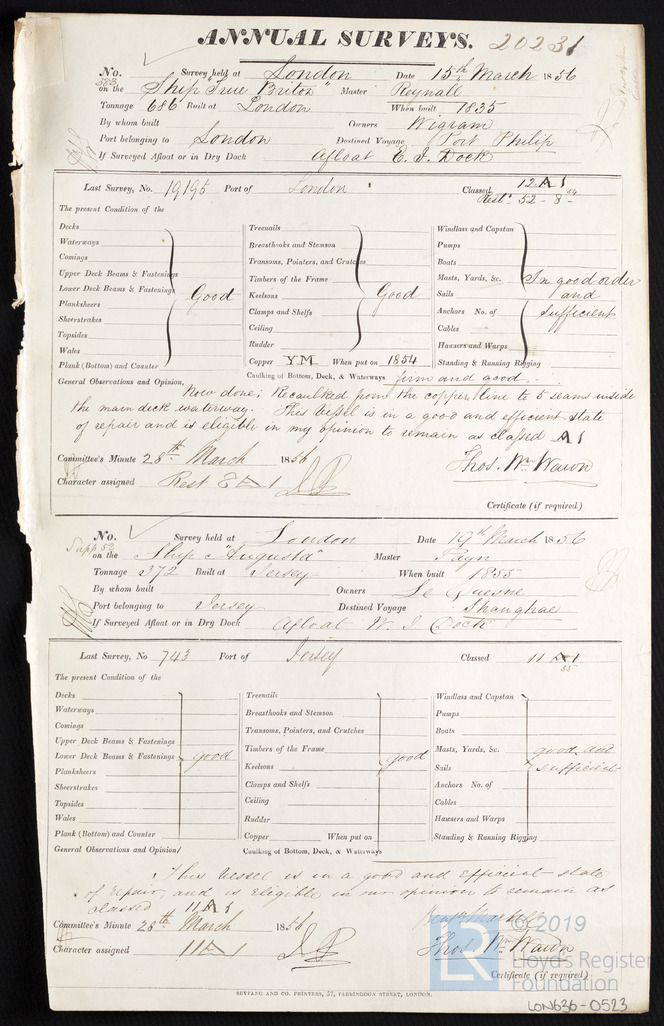 ANNUAL SURVEYS. 20231
No. 583 Survey held at London Date 15th March 1856
on the Ship "True Briton" Master Reynall
Tonnage 686 Built at London When built 1835
By whom built Owners Wigram
Port belonging to London Destined Voyage Port Philip
If Surveyed Afloat or in Dry Dock Afloat E. I. Dock
Last Survey, No. 19195 Port of London Classed 12 A 1
Rest. 52 - 8 - 54
The present Condition of the
Decks Treenails Windlass and Capstan
Waterways Breasthooks and Stemson Pumps
Comings Transoms, Pointers, and Crutches Boats
Upper Deck Beams & Fastenings Timbers of the Frame Masts, Yards, &c. In good order
Lower Deck Beams & Fastenings Good Keelsons Good Sails and
Planksheers Clamps and Shelfs Anchors No. of sufficient
Sheerstrakes Ceiling Cables
Topsides Rudder Hawsers and Warps
Wales Copper YM When put on 1854 Standing & Running Rigging
Plank (Bottom) and Counter Caulking of Bottom, Deck, & Waterways firm and good -
General Observations and Opinion, Now done; Recaulked from the copper line to 5 seams inside
the main deck waterway. This Vessel is in a good and efficient state
of repair and is eligible in my opinion to remain as classed A1
Committee's Minute 28th March 1856 Thos. Wm Wawn
Character assigned Rest 8 A 1
Certificate (if required)
No. Survey held at London Date 19th March 1856
Supp 52 on the Ship "Augusta" Master Payn
Tonnage 372 Built at Jersey When built 1855
By whom built Owners Le Quesne
Port belonging to Jersey Destined Voyage Shanghae
If Surveyed Afloat or in Dry Dock Afloat W. I. Dock
Last Survey, No 743 Port of Jersey Classed 11 A 1
55
The present Condition of the
Decks Treenails Windlass and Capstan
Waterways Breasthooks and Stemson Pumps
Comings Transoms, Pointers, and Crutches Boats
Upper Deck Beams & Fastenings Timbers of the Frame Masts, Yards, &c. good and
Lower Deck Beams & Fastenings good Keelsons good Sails sufficient
Planksheers Clamps and Shelfs Anchors No. of
Sheerstrakes Ceiling Cables
Topsides Rudder Hawsers and Warps
Wales Copper When put on Standing & Running Rigging
Plank (Bottom) and Counter Caulking of Bottom, Deck, & Waterways
General Observations and Opinion,
This Vessel is in a good and efficient state
of repair, and is eligible in our opinion to remain as
classed 11 A 1
Committee's Minute 28th March 1856
Character assigned 11 A 1 Thos. Wm Wawn
Certificate (if required)
SEYFANG AND CO. PRINTERS, 57, FARRINGDON STREET, LONDON.
LR © 2019
Lloyd's Register
Foundation
LON636-0523